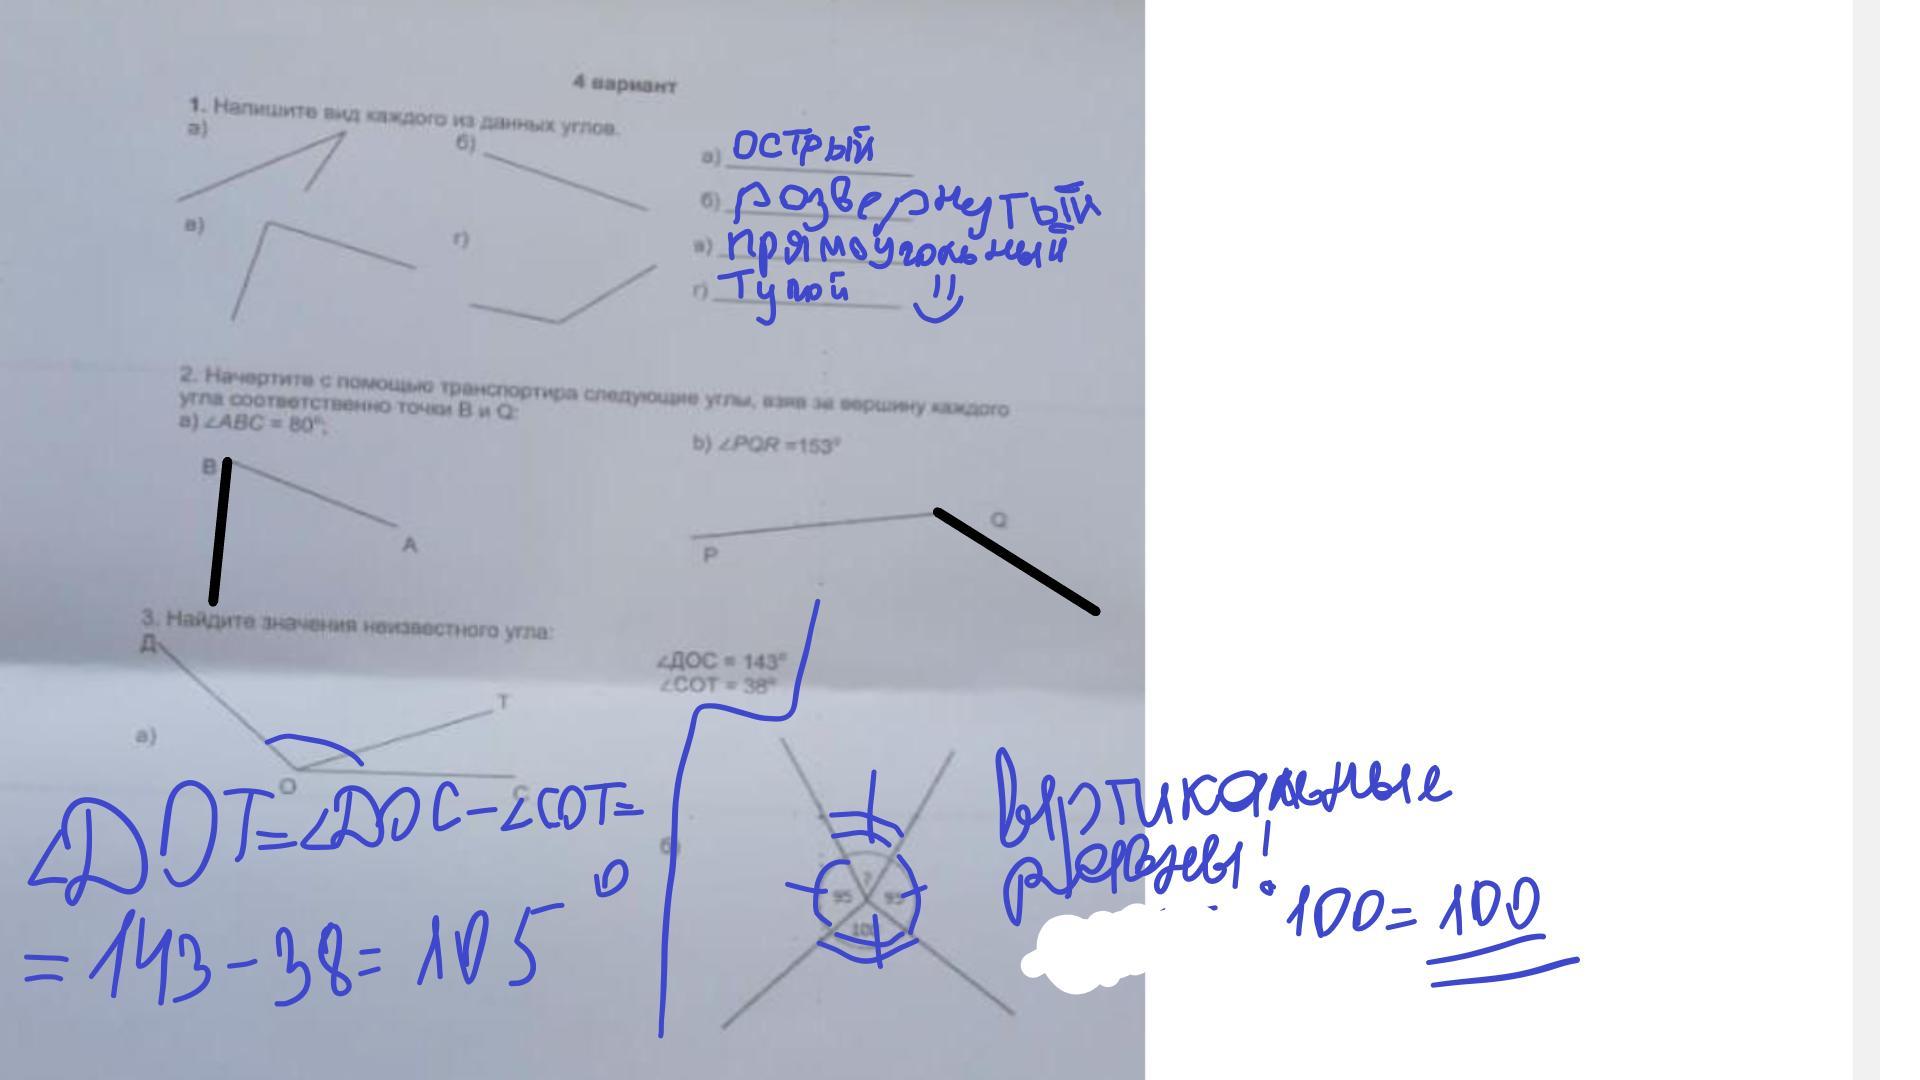 4 вариант
1. Напишите вид каждого из данных углов.
а)
б)
а) острый
б) розвернутый
в)
г)
в) прямоугольный
г) Тупой
2. Начертите с помощью транспортира следующие углы, взяв за вершину каждого
угла соответственно точки В и Q:
а) ∠ABC = 80°;
b) ∠PQR =153°
B
A
P
Q
3. Найдите значения неизвестного угла:
Д
∠ДОС = 143°
∠СОТ = 38°
T
а)
O
C
∠DOT=∠DOC-∠COT=
= 143-38= 105°
б)
?
95
95
100
Вертикальные
равны!
100=100